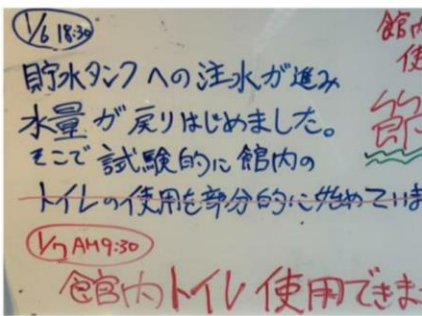 1/6 18:30
貯水タンクへの注水が進み
水量が戻りはじめました。
そこで試験的に館内の
トイレの使用を部分的に始めていま
1/7 AM9:30
館内トイレ使用できま
館内
使
節